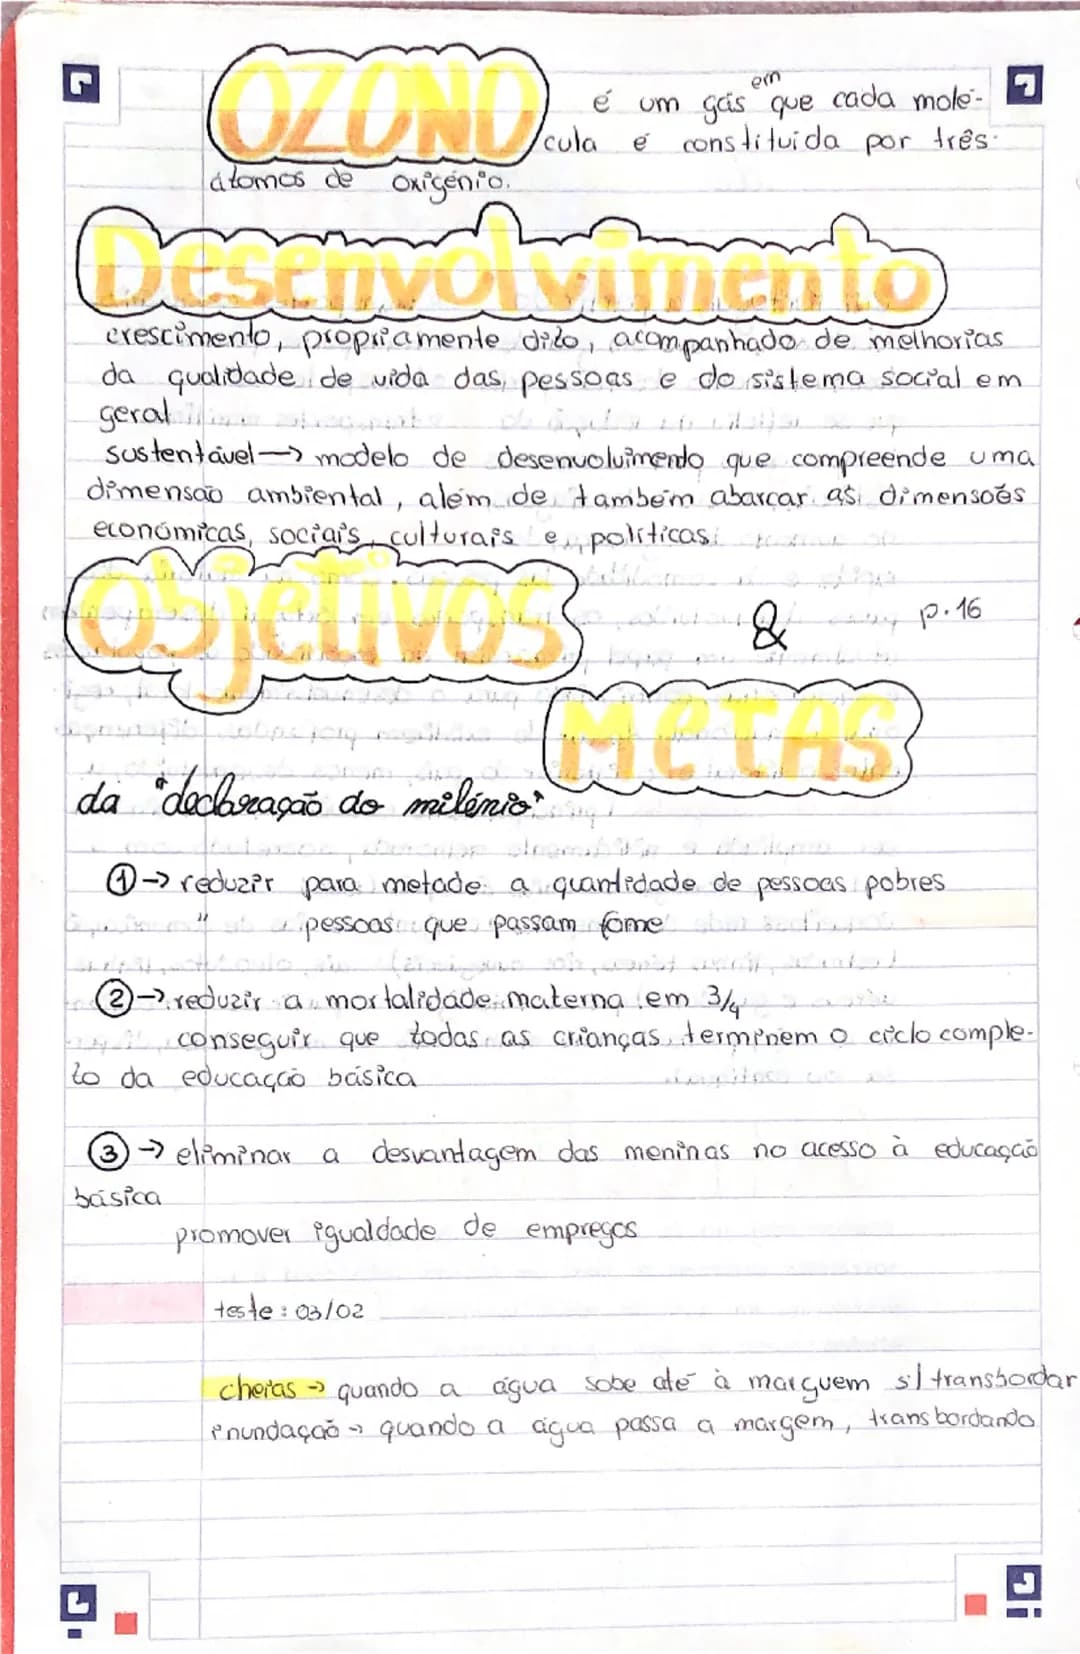 OZONO é um gás em que cada molé-
cula é constituída por três
átomos de oxigénio.
Desenvolvimento
crescimento, propriamente dito, acompanhado de melhorias
da qualidade de vida das pessoas e do sistema social em
geral
sustentável → modelo de desenvolvimendo que compreende uma
dimensão ambiental, além de também abarcar as dimensões
económicas, sociais, culturais e políticas.
Objetivos & p.16
METAS
da "declaração do milénio"
① → reduzir para metade a quantidade de pessoas pobres
" pessoas que passam fome
② → reduzir a mortalidade materna em 3/4
conseguir que todas as crianças terminem o ciclo comple-
to da educação básica
③ → eliminar a desvantagem das meninas no acesso à educação
básica
promover igualdade de empregos
teste: 03/02
cheias → quando a água sobe até à marguem s/ transbordar
inundação → quando a água passa a margem, transbordando